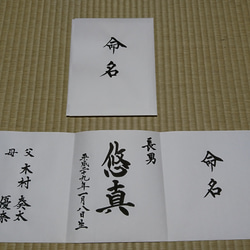 命名
命名
長男
悠真
平成二十九年一月八日生
父 木村 奏太
母 優奈